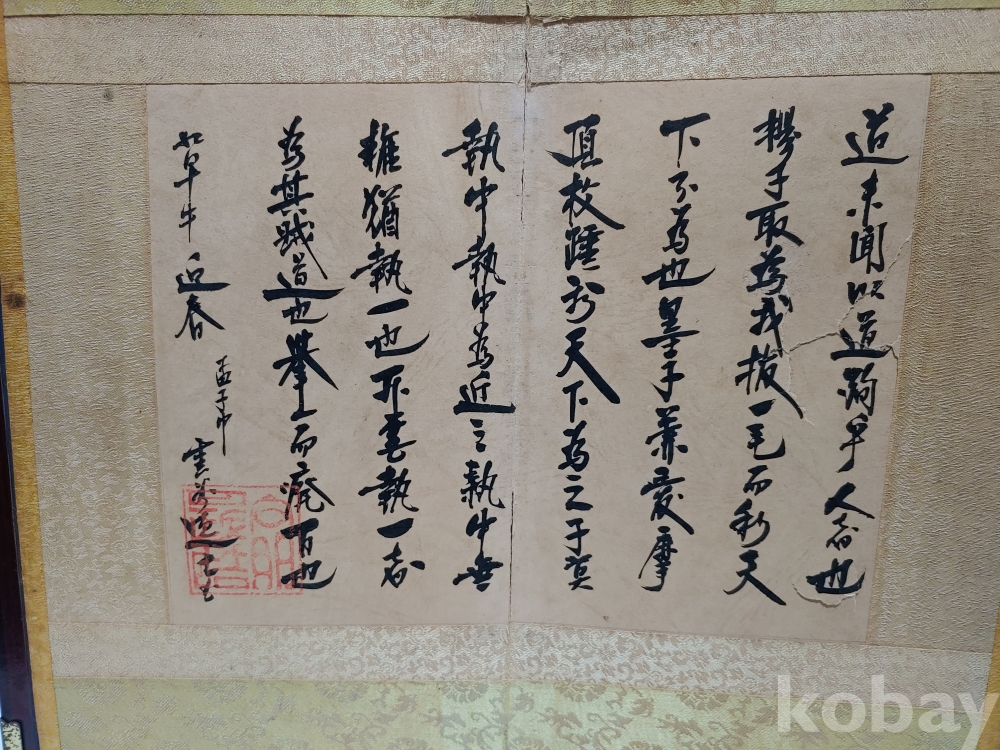 道未聞以道殉乎人者也
楊子取為我拔一毛而利天
下不為也墨子兼愛摩
頂放踵利天下為之子莫
執中執中為近之執中無
權猶執一也所惡執一者
為其賊道也舉一而廢百也
迎春
孟子
kobay